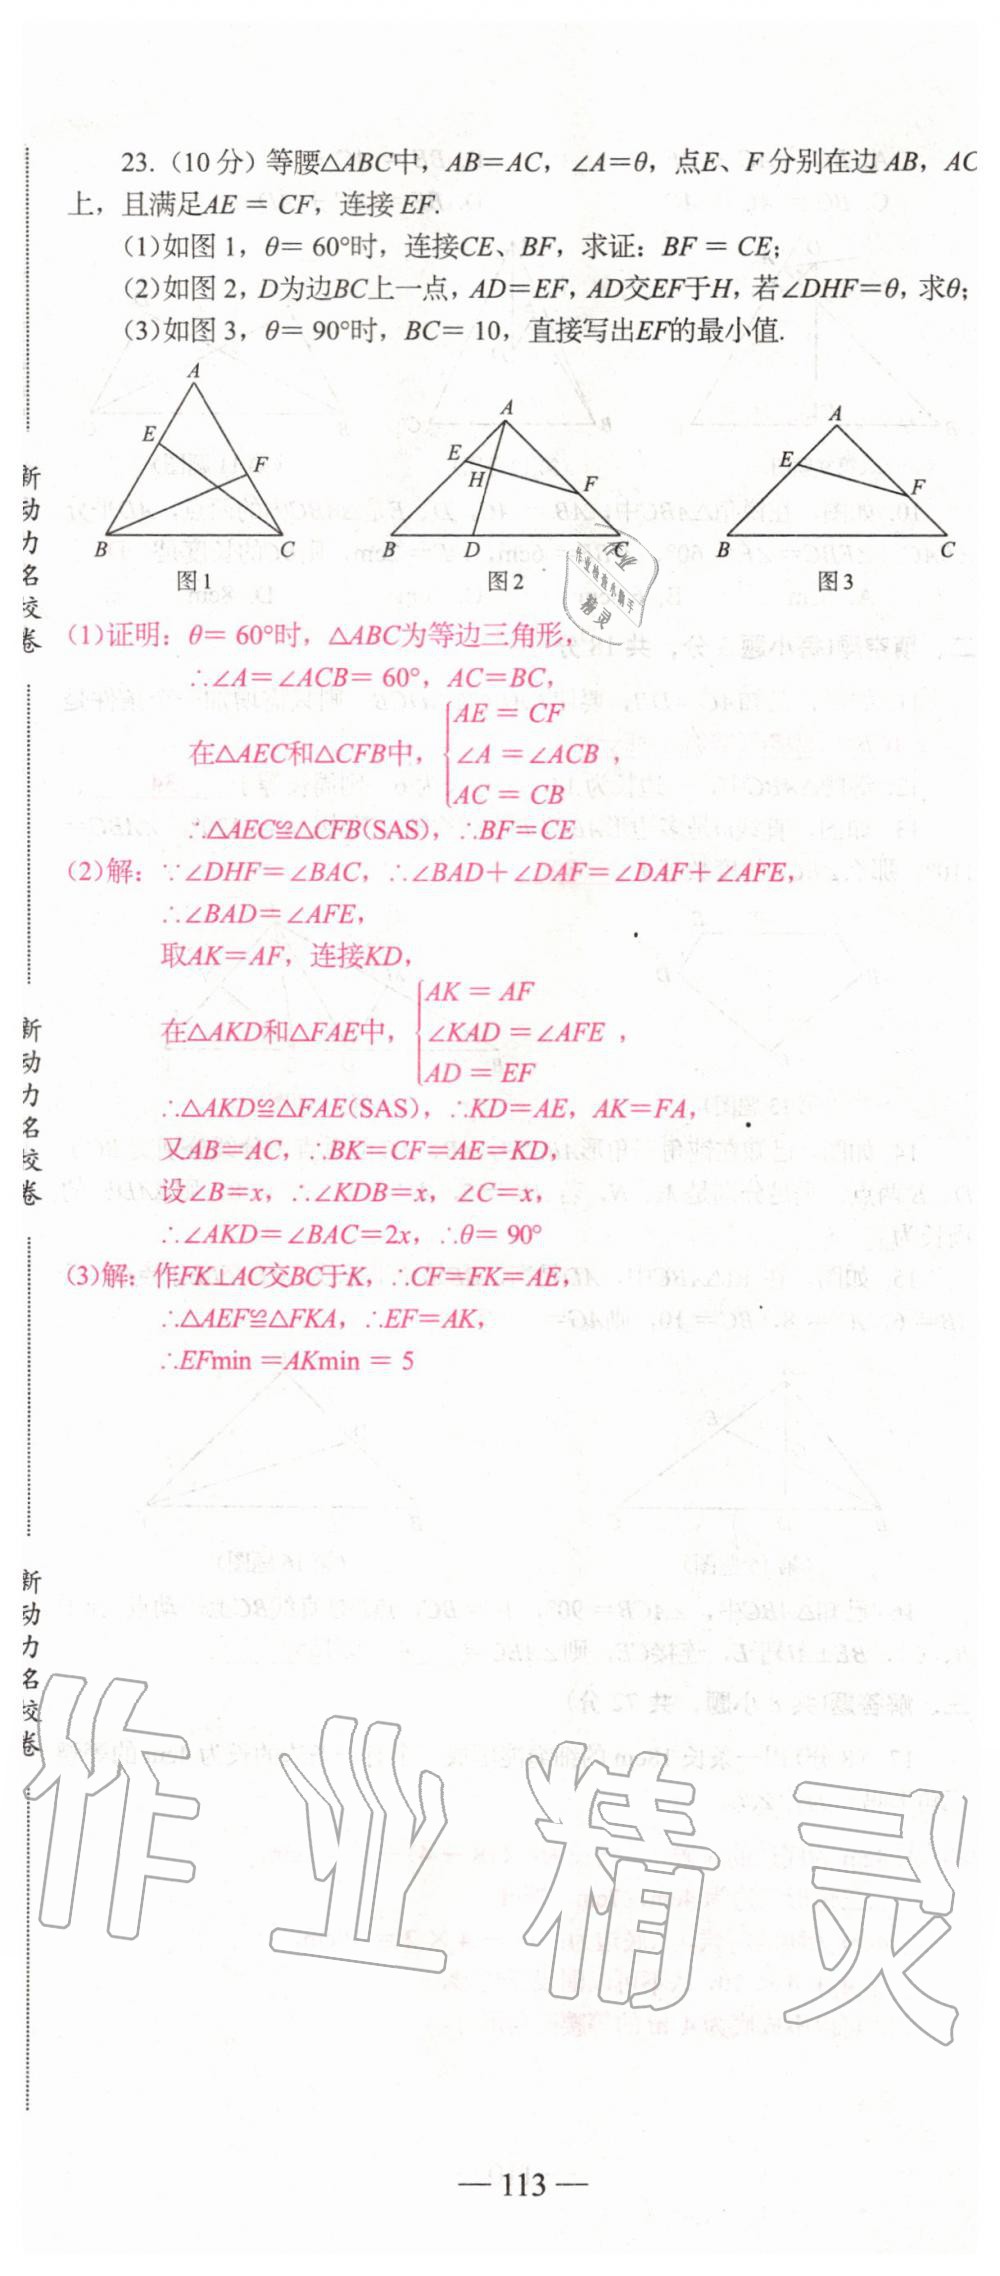 23.（10 分）等腰△ABC中，AB＝AC，∠A＝θ，点E、F 分别在边 AB，AC
上，且满足AE ＝ CF，连接 EF.
(1)如图 1，θ＝ 60°时，连接CE、BF，求证：BF ＝ CE；
(2)如图 2，D为边BC上一点，AD＝EF，AD交EF于H，若∠DHF＝θ，求θ；
(3)如图 3，θ＝ 90°时，BC＝ 10，直接写出EF的最小值.
A
E
F
B
C
图 1
A
E
H
F
B
D
C
图 2
A
E
F
B
C
图 3
(1)证明：θ＝ 60°时，△ABC为等边三角形，
∴∠A＝∠ACB＝ 60°，AC＝BC，
AE ＝ CF
在△AEC和△CFB中，∠A ＝∠ACB，
AC ＝ CB
∴△AEC≌△CFB(SAS)，∴BF＝CE
(2)解：∵∠DHF＝∠BAC，∴∠BAD＋∠DAF＝∠DAF＋∠AFE，
∴∠BAD＝∠AFE，
取AK＝AF，连接KD，
AK ＝ AF
在△AKD和△FAE中，∠KAD ＝∠AFE，
AD ＝ EF
∴△AKD≌△FAE(SAS)，∴KD＝AE，AK＝FA，
又AB＝AC，∴BK＝CF＝AE＝KD，
设∠B＝x，∴∠KDB＝x，∠C＝x，
∴∠AKD＝∠BAC＝2x，∴θ＝ 90°
(3)解：作FK⊥AC交BC于K，∴CF＝FK＝AE，
∴△AEF≌△FKA，∴EF＝AK，
∴EFmin ＝AKmin ＝ 5
新动力名校卷
新动力名校卷
新动力名校卷
作业精灵
— 113 —